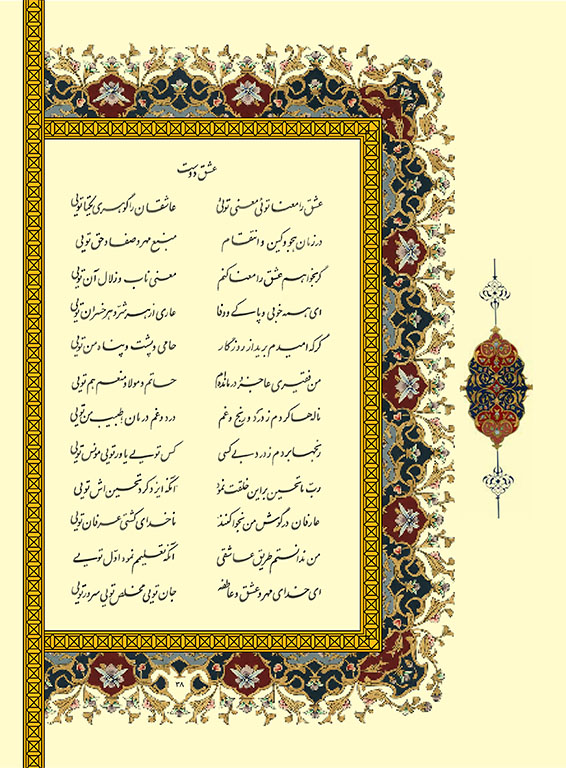 عشق دوست
عشق را معنا توئی معنی توئی عاشقان را گوهری یکتا تویی
در زمان هجو و کین و انتقام منبع مهر و صفا و حق تویی
گر بخواهم عشق را معنا کنم معنی ناب و زلال آن تویی
ای همه خوبی و پاکی و وفا عاری از هر شرّ و هر خسران تویی
گر که امیدم برید از روزگار حامی و پشت و پناه من تویی
من فقیری عاجز و درمانده‌ام حاتم و مولا و منعم هم تویی
ناله‌ها کردم ز درد و رنج و غم درد و غم درمان طبیب من تویی
رنجها بردم ز درد بی کسی کس تویی یاور تویی مونس تویی
ربّ ما تحسین بر این خلقت نمود آنکه ایزد کرد تحسین اش تویی
عارفان در گوش من نجوا کنند ناخدای کشتی عرفان تویی
من ندانستم طریق عاشقی آنکه تعلیمم نمود اوّل تویی
ای خدای مهر و عشق و عاطفه جان تویی مخلص تویی سرور تویی
۳۸